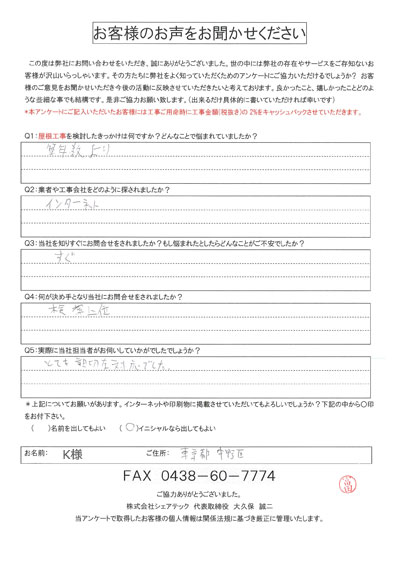 お客様のお声をお聞かせください
この度は弊社にお問い合わせをいただき、誠にありがとうございます。世の中には弊社の存在やサービスをご存知ないお
客様が沢山いらっしゃいます。その方たちに弊社をよく知っていただくためのアンケートにご協力いただけるでしょうか? お客
様のご意見をお聞かせいただき今後の活動に反映させていただきたいと考えております。良かったこと、嬉しかったことどのよ
うな些細な事でも結構です。是非ご協力お願い致します。（出来るだけ具体的に書いていただければ幸いです）
*本アンケートにご記入いただいたお客様には工事ご用命時に工事金額(税抜き)の2%をキャッシュバックさせていただきます。
Q1:屋根工事を検討したきっかけは何ですか?どんなことで悩まれていましたか?
築年数より
Q2:業者や工事会社をどのように探されましたか?
インターネット
Q3:当社を知りすぐにお問合せをされましたか?もし悩まれたとしたらどんなことがご不安でしたか?
すぐ
Q4:何が決め手となり当社にお問合せをされましたか?
Q5:実際に当社担当者がお伺いしていかがでしたでしょうか?
とても親切な対応でした
*上記についてお願いがあります。インターネットや印刷物に掲載させていただいてもよろしいでしょうか?下記の中から〇印
をお付下さい。
（ ）名前を出してもよい （〇）イニシャルなら出してもよい
お名前: K様 ご住所: 東京都中野区
FAX 0438-60-7774
ご協力ありがとうございました。
株式会社シェアテック 代表取締役 大久保 誠二
当アンケートで取得したお客様の個人情報は関係法規に基づき厳正に管理いたします。